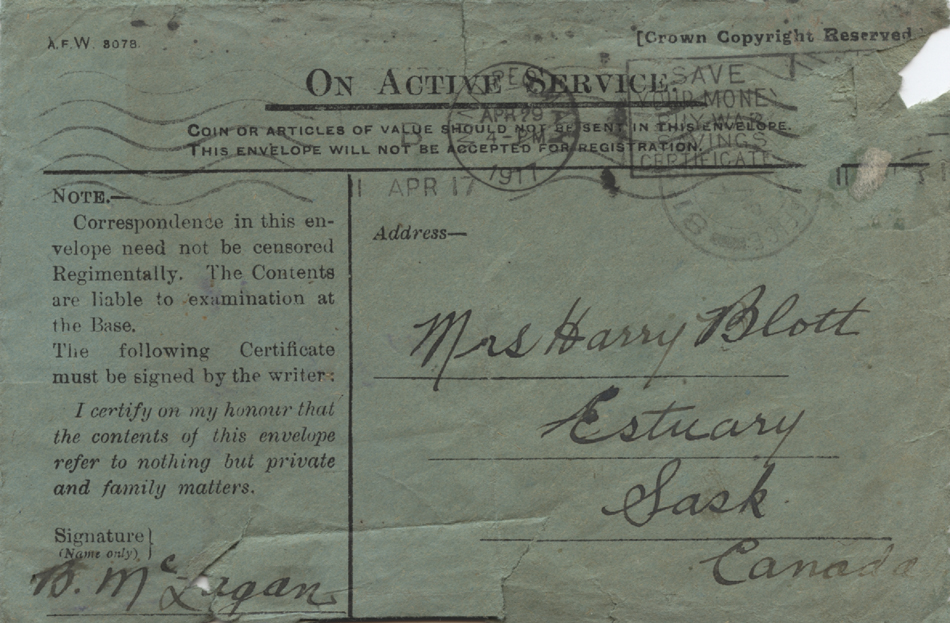 A.F.W. 3078.
[Crown Copyright Reserved.
ON ACTIVE SERVICE
APR 29
4 PM
1917
SAVE
YOUR MONEY
BUY WAR
SAVINGS
CERTIFICATE
COIN OR ARTICLES OF VALUE SHOULD NOT BE SENT IN THIS ENVELOPE.
THIS ENVELOPE WILL NOT BE ACCEPTED FOR REGISTRATION.
APR 17
NOTE.—
Correspondence in this en-
velope need not be censored
Regimentally. The Contents
are liable to examination at
the Base.
The following Certificate
must be signed by the writer:
I certify on my honour that
the contents of this envelope
refer to nothing but private
and family matters.
Signature}
(Name only)
B. McLagan
Address—
Mrs Harry Blott
Estuary
Sask
Canada